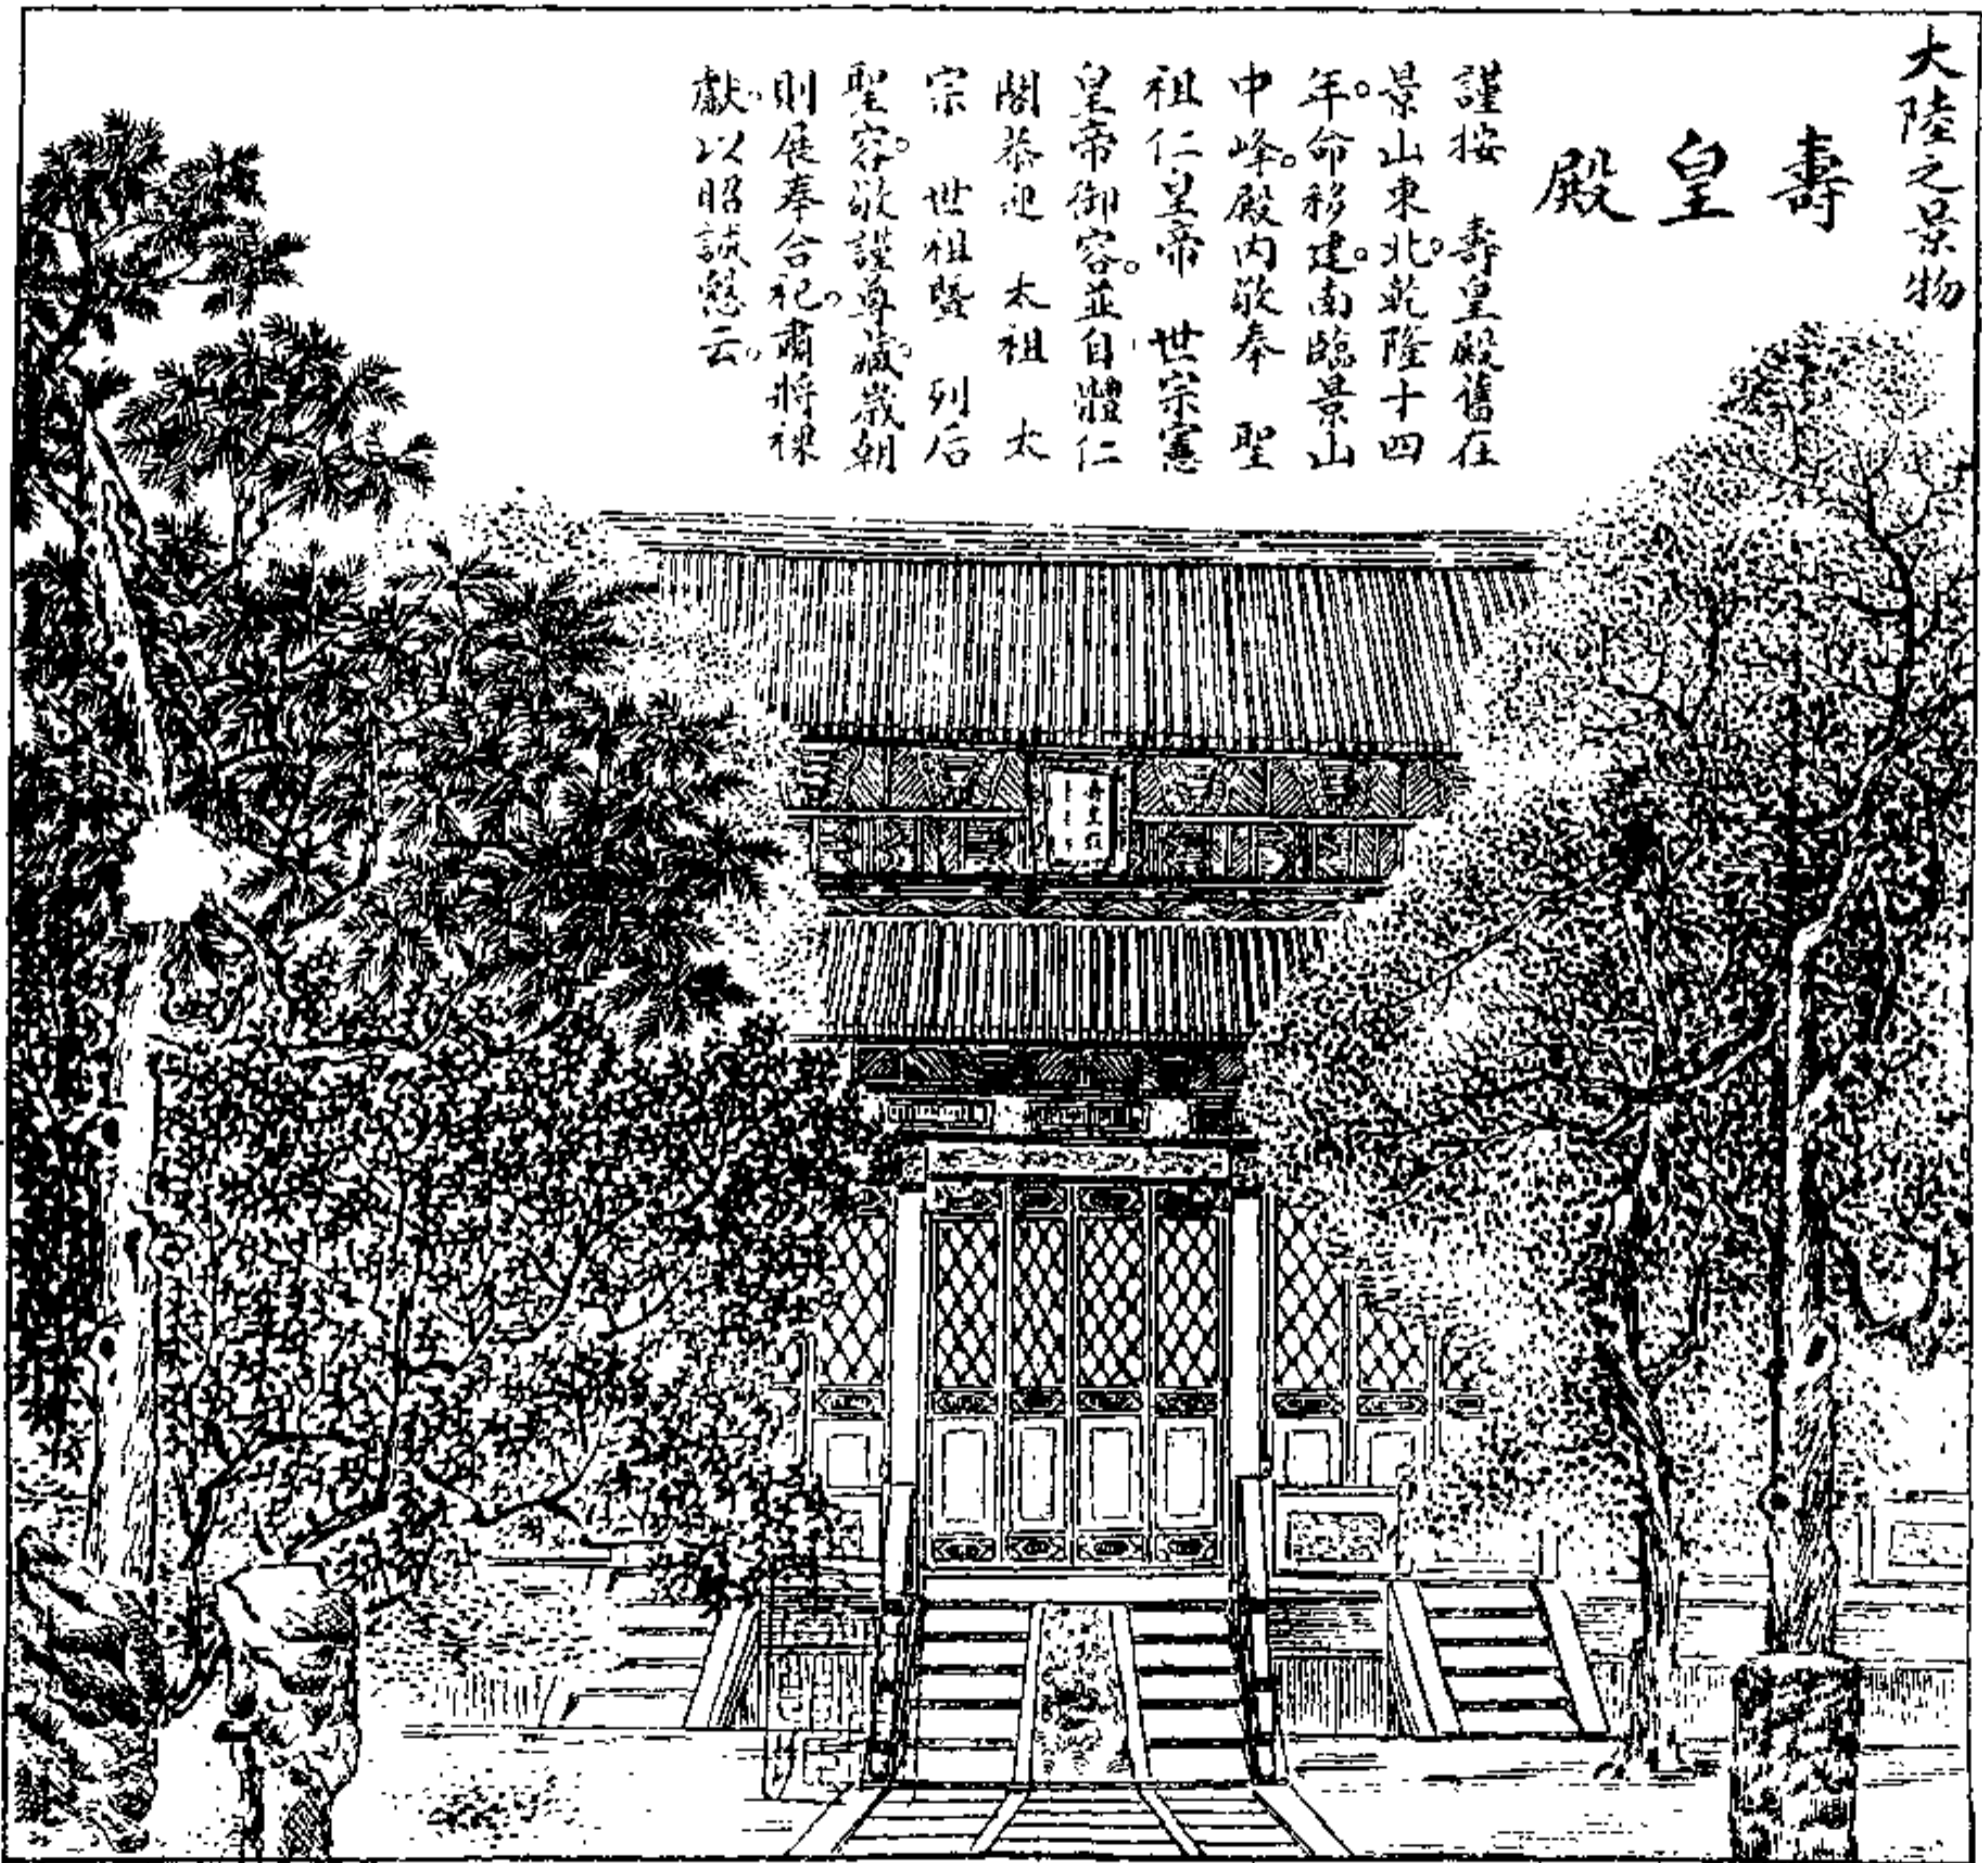 大陸之景物
壽皇殿
謹按　壽皇殿舊在
景山東北。乾隆十四
年。命移建。南臨景山
中峰。殿內敬奉　聖
祖仁皇帝　世宗憲
皇帝御容。並自體仁
閣恭迎　太祖　太
宗　世祖暨　列后
聖容。敬謹尊藏。歲朝
則展奉合祀。肅將祼
獻。以昭誠愨云。
壽皇殿